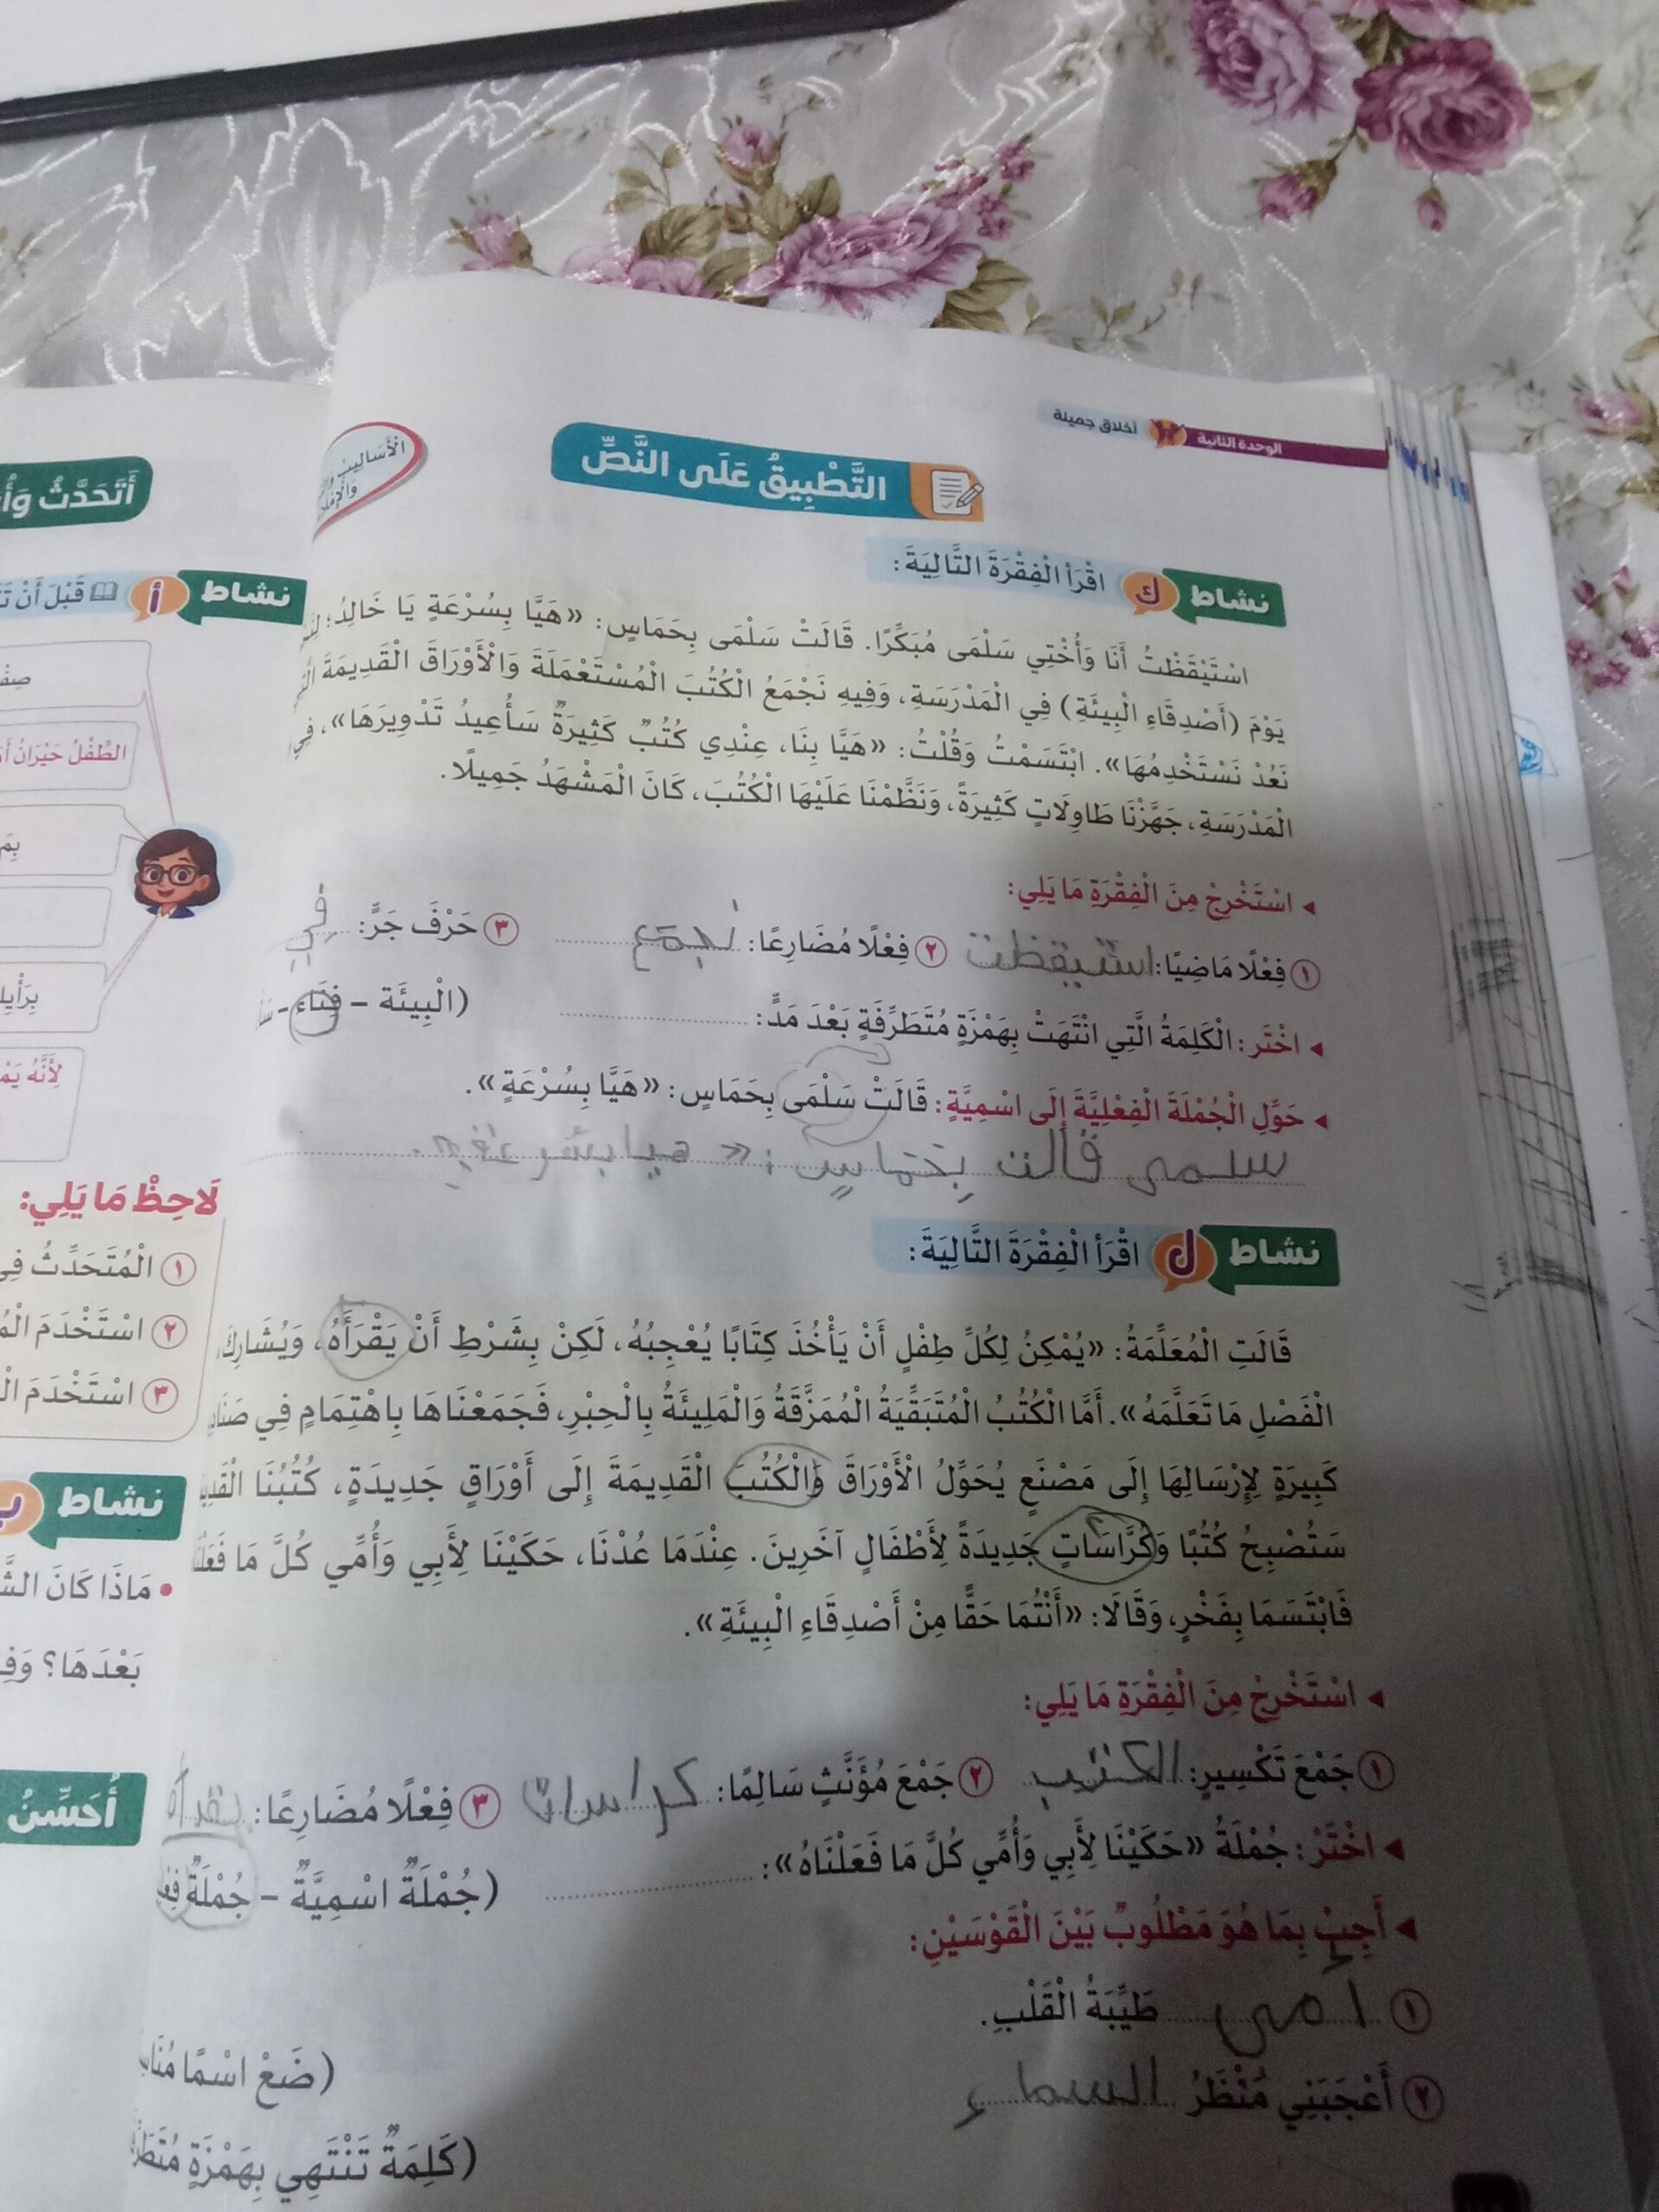 الوحدة الثانية أخلاق جميلة
التَّطْبِيقُ عَلَى النَّصِّ
الْأَسَالِيبُ
نشاط ك اقْرَأِ الْفِقْرَةَ التَّالِيَةَ:
اسْتَيْقَظْتُ أَنَا وَأُخْتِي سَلْمَى مُبَكِّرًا. قَالَتْ سَلْمَى بِحَمَاسٍ: «هَيَّا بِسُرْعَةٍ يَا خَالِدُ؛
يَوْمَ (أَصْدِقَاءِ الْبِيئَةِ) فِي الْمَدْرَسَةِ، وَفِيهِ نَجْمَعُ الْكُتُبَ الْمُسْتَعْمَلَةَ وَالْأَوْرَاقَ الْقَدِيمَةَ
نَعُدْ نَسْتَخْدِمُهَا». ابْتَسَمْتُ وَقُلْتُ: «هَيَّا بِنَا، عِنْدِي كُتُبٌ كَثِيرَةٌ سَأُعِيدُ تَدْوِيرَهَا»، فِي
الْمَدْرَسَةِ، جَهَّزْنَا طَاوِلَاتٍ كَثِيرَةً، وَنَظَّمْنَا عَلَيْهَا الْكُتُبَ، كَانَ الْمَشْهَدُ جَمِيلًا.
◂ اسْتَخْرِجْ مِنَ الْفِقْرَةِ مَا يَلِي:
١ فِعْلًا مَاضِيًا: استيقظت ٢ فِعْلًا مُضَارِعًا: نجمع ٣ حَرْفَ جَرٍّ: في
◂ اخْتَر: الْكَلِمَةُ الَّتِي انْتَهَتْ بِهَمْزَةٍ مُتَطَرِّفَةٍ بَعْدَ مَدٍّ: (الْبِيئَة – فِنَاء –
◂ حَوِّلِ الْجُمْلَةَ الْفِعْلِيَّةَ إِلَى اسْمِيَّةٍ: قَالَتْ سَلْمَى بِحَمَاسٍ: «هَيَّا بِسُرْعَةٍ».
سلمى قالت بحماس: « هيا بسرعة
نشاط ل اقْرَأِ الْفِقْرَةَ التَّالِيَةَ:
قَالَتِ الْمُعَلِّمَةُ: «يُمْكِنُ لِكُلِّ طِفْلٍ أَنْ يَأْخُذَ كِتَابًا يُعْجِبُهُ، لَكِنْ بِشَرْطِ أَنْ يَقْرَأَهُ، وَيُشَارِكَ
الْفَصْلِ مَا تَعَلَّمَهُ». أَمَّا الْكُتُبُ الْمُتَبَقِّيَةُ الْمُمَزَّقَةُ وَالْمَلِيئَةُ بِالْحِبْرِ، فَجَمَعْنَاهَا بِاهْتِمَامٍ فِي
كَبِيرَةٍ لِإِرْسَالِهَا إِلَى مَصْنَعٍ يُحَوِّلُ الْأَوْرَاقَ وَالْكُتُبَ الْقَدِيمَةَ إِلَى أَوْرَاقٍ جَدِيدَةٍ، كُتُبُنَا
سَتُصْبِحُ كُتُبًا وَكُرَّاسَاتٍ جَدِيدَةً لِأَطْفَالٍ آخَرِينَ. عِنْدَمَا عُدْنَا، حَكَيْنَا لِأَبِي وَأُمِّي كُلَّ مَا
فَابْتَسَمَا بِفَخْرٍ، وَقَالَا: «أَنْتُمَا حَقًّا مِنْ أَصْدِقَاءِ الْبِيئَةِ».
◂ اسْتَخْرِجْ مِنَ الْفِقْرَةِ مَا يَلِي:
١ جَمْعَ تَكْسِيرٍ: الكتب ٢ جَمْعَ مُؤَنَّثٍ سَالِمًا: كراسات ٣ فِعْلًا مُضَارِعًا: يقرأه
◂ اخْتَرْ: جُمْلَةُ «حَكَيْنَا لِأَبِي وَأُمِّي كُلَّ مَا فَعَلْنَاهُ»: (جُمْلَةٌ اسْمِيَّةٌ – جُمْلَةٌ
◂ أَجِبْ بِمَا هُوَ مَطْلُوبٌ بَيْنَ الْقَوْسَيْنِ:
١ أمي طَيِّبَةُ الْقَلْبِ.
(ضَعْ اسْمًا
٢ أَعْجَبَنِي مَنْظَرُ السماء
(كَلِمَةٌ تَنْتَهِي بِهَمْزَةٍ
أَتَحَدَّثُ
نشاط أ قَبْلَ أَنْ
الطِّفْلُ حَيْرَانُ
لِأَنَّهُ
لَاحِظْ مَا يَلِي:
١ الْمُتَحَدِّثُ
٢ اسْتَخْدَمَ
٣ اسْتَخْدَمَ
نشاط ب
• مَاذَا كَانَ
بَعْدَهَا؟
أُحَسِّنُ